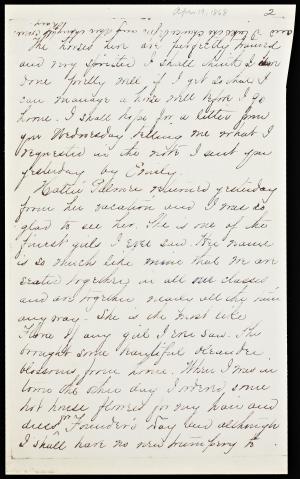 Apr. 19, 1868
2
The horses here are perfectly trained
and very spirited I shall think I have
done pretty well if I get so that I
can manage a horse well before I go
home. I shall hope for a letter from
you Wednesday telling me what I
requested in the note I sent you
yesterday by Emily.
Hattie Palmer returned yesterday
from her vacation and I was so
glad to see her. She is one of the
finest girls I ever saw. Her name
is so much like mine that we are
seated together in all our classes
and are together nearly all the time
any way. She is the most like
Flora of any girl I ever saw. She
brought some beautiful oleander
blossoms from home. When I was in
town the other day I ordered some
hot house flowers for my hair and
dress for Founder's Day and although
I shall have no new trumpery to